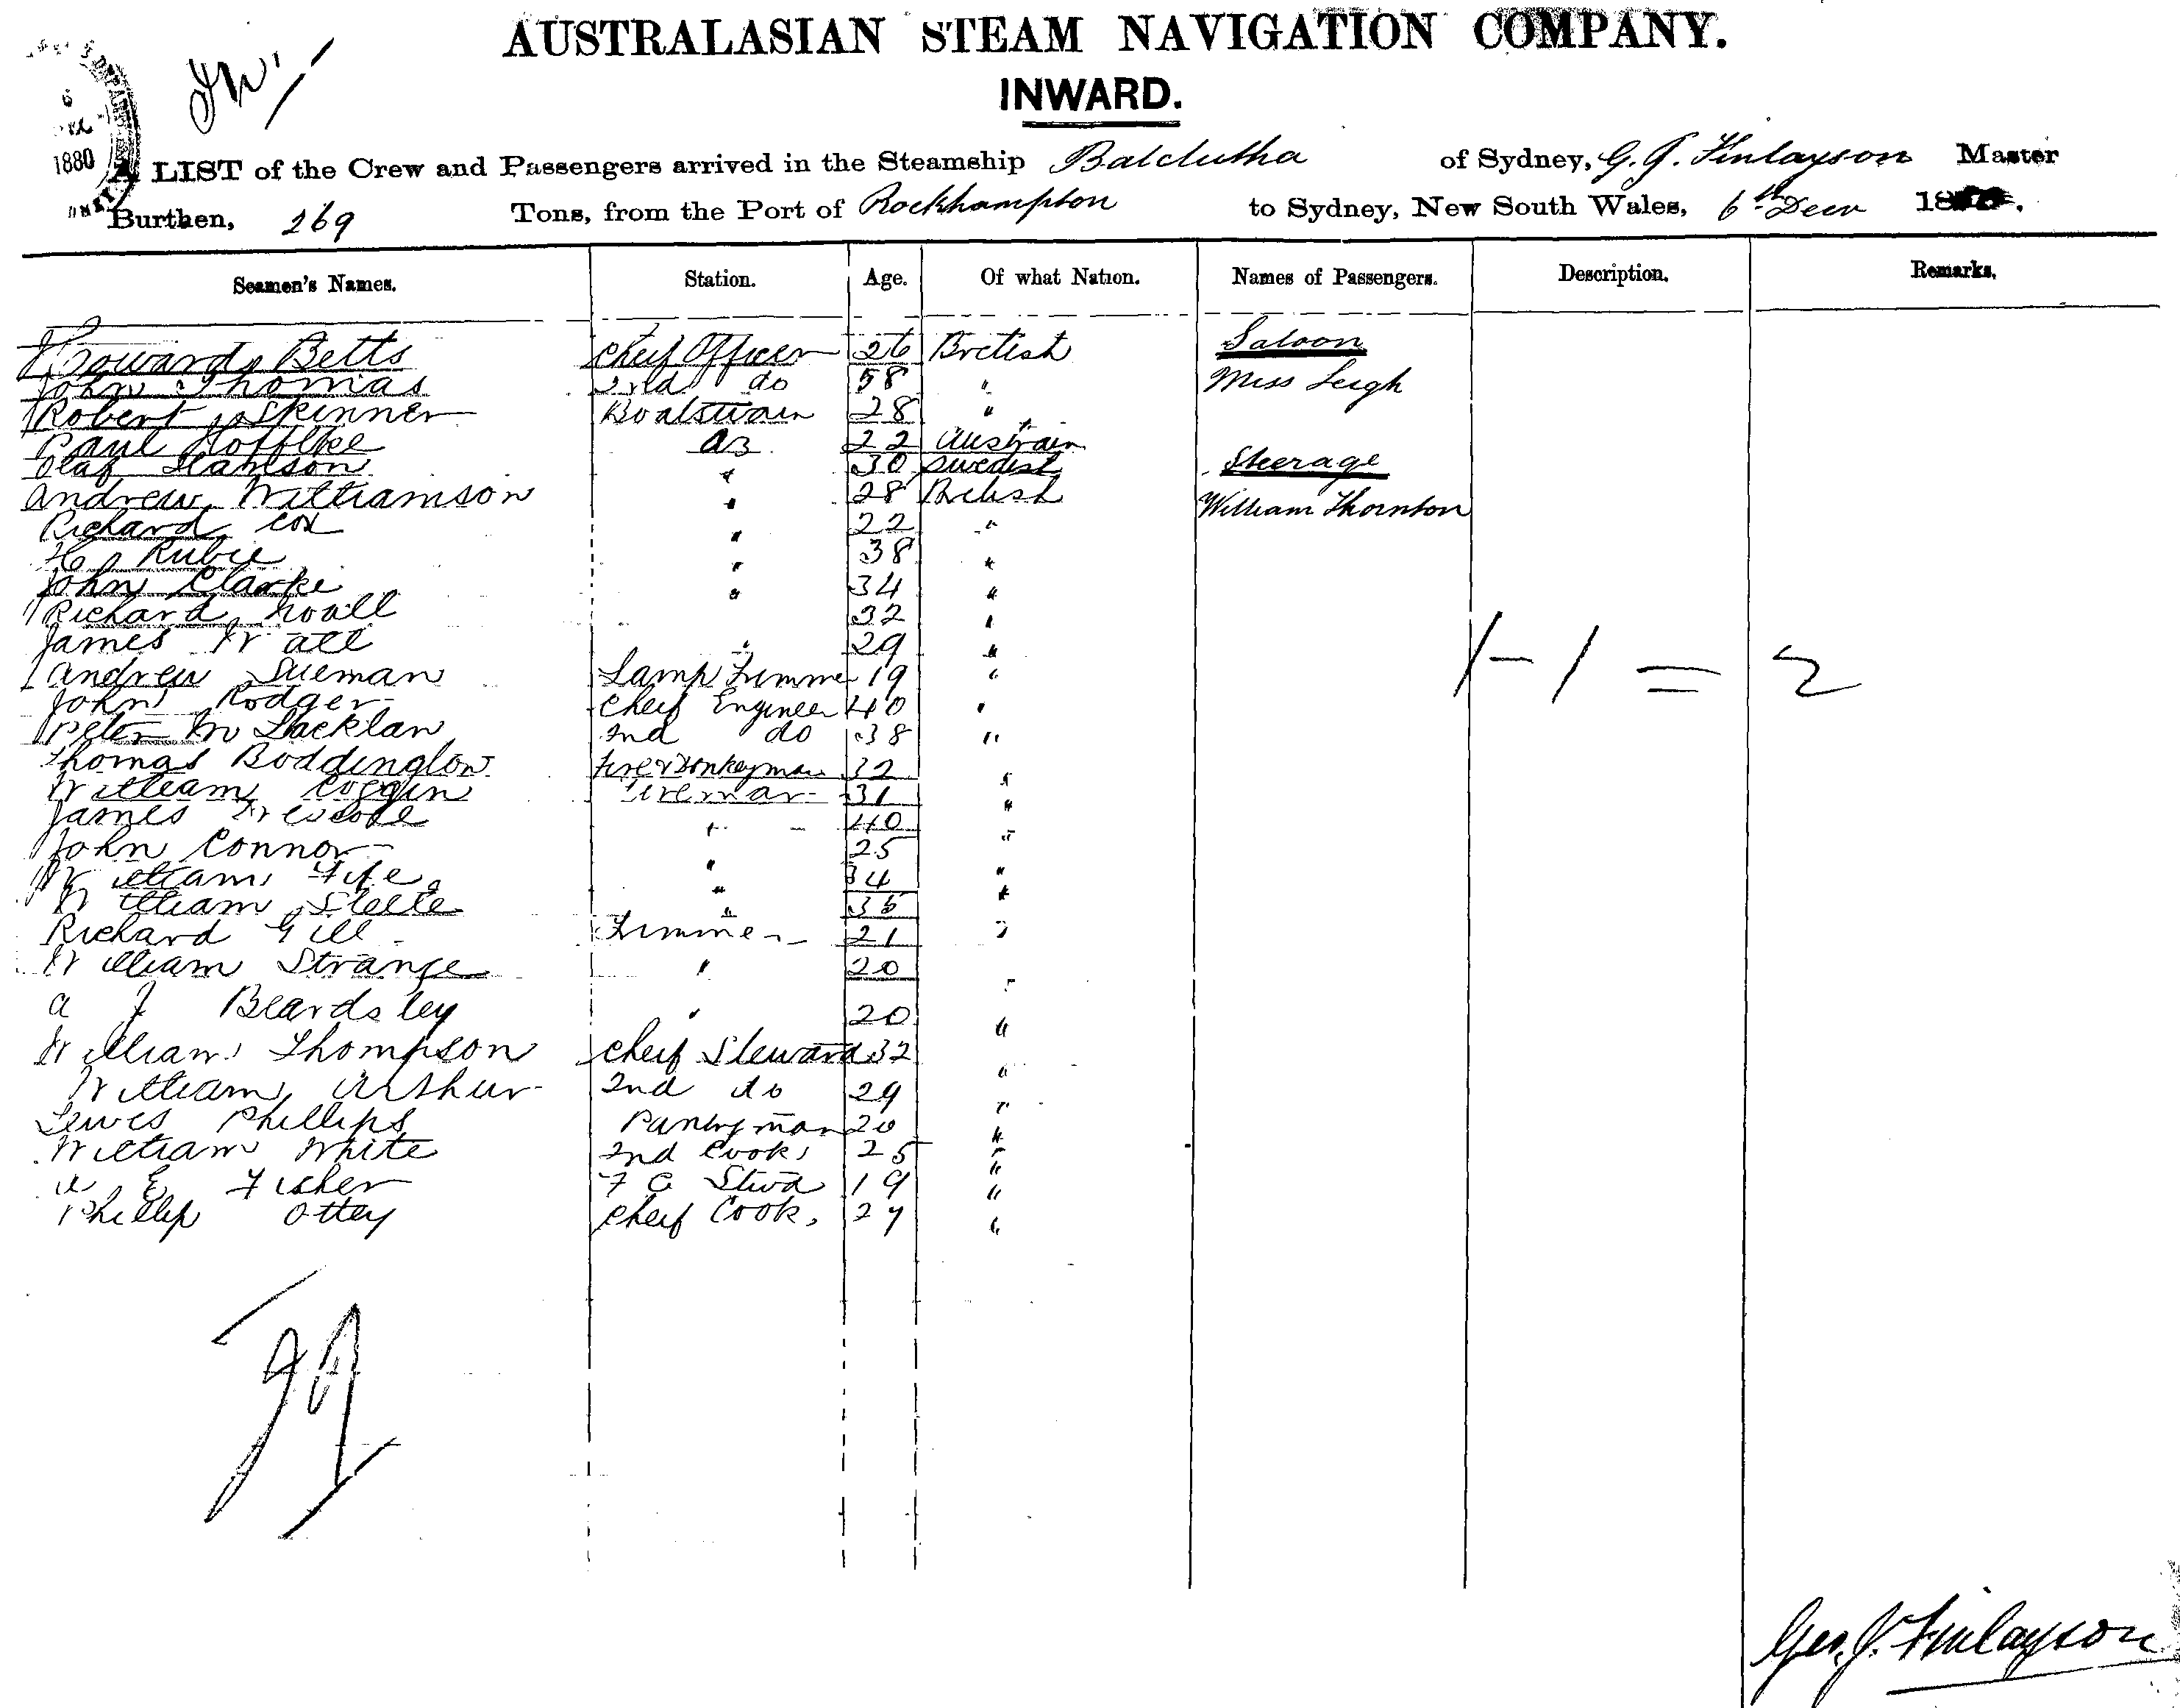 AUSTRALASIAN STEAM NAVIGATION COMPANY.
INWARD.
6
1880
A LIST of the Crew and Passengers arrived in the Steamship Balclutha of Sydney, G. J. Finlayson Master
Burthen, 269 Tons, from the Port of Rockhampton to Sydney, New South Wales, 6th Decr 18
Seamen's Names. Station. Age. Of what Nation. Names of Passengers. Description. Remarks.
Betts Cheif Officer 26 British Saloon
John Thomas 2nd do 58 " Miss Leigh
Robert Skinner Boatswain 28 "
Paul AB 22 Austrain
Olaf 30 Swedish Steerage
Andrew Williamson " 28 British William Thornton
Richard Cox " 22 "
H Rubie " 38 "
John Clarke " 34 "
Richard 32 "
James Wall " 29 "
Andrew Lamp Trimmer 19 "
John Rodger Cheif Engineer 40 "
Peter Mc Lacklan 2nd do 38 "
Thomas Boddington Fire & Donkeyman 32 "
William Coggin Fireman 31 "
James " 40 "
John Connor " 25 "
William Fife " 34 "
William Steele " 36 "
Richard Gill Trimmer 21 "
William Strange " 20 "
A J Beardsley " 20 "
William Thompson Cheif Steward 32 "
William Arthur 2nd do 29 "
Lewis Phillips Pantryman 20 "
William White 2nd Cook 25 "
E Fisher F C Stwd 19 "
Phillip Ottey Cheif Cook, 27 "
1 - 1 = 2
Geo. J. Finlayson